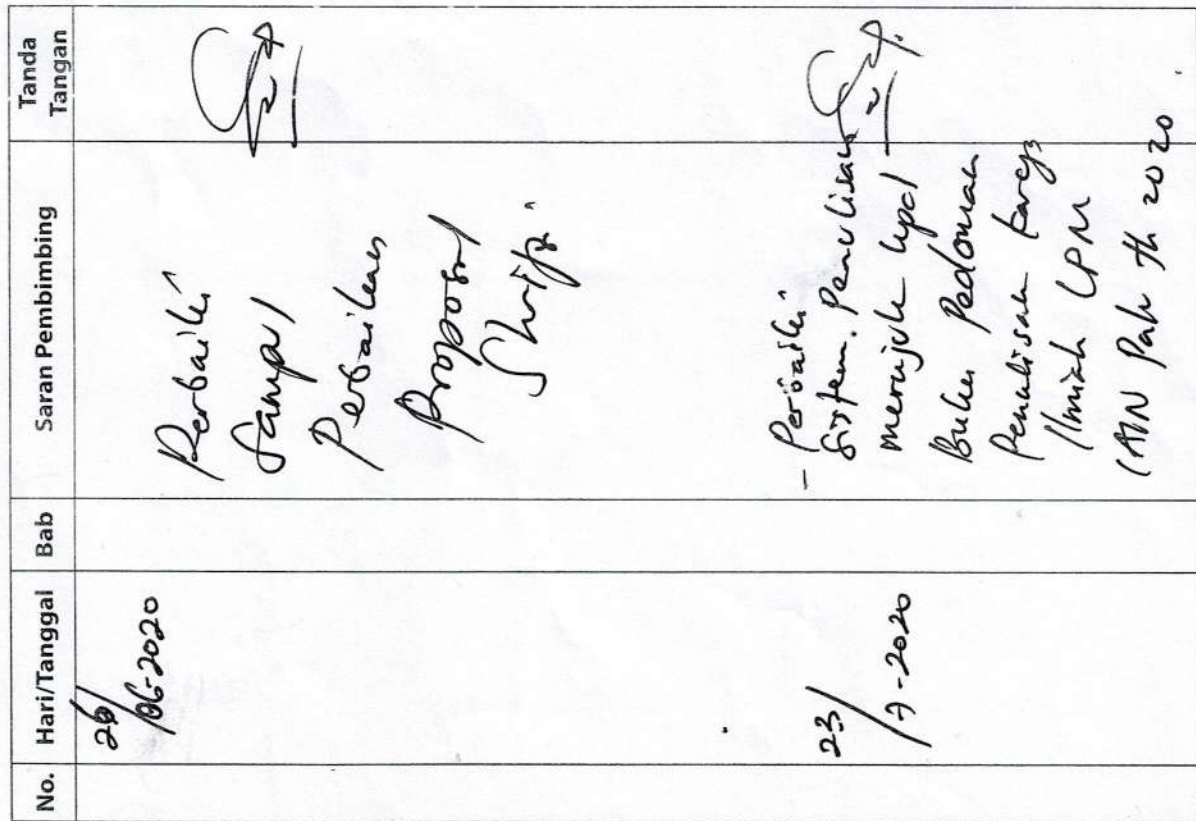 No. Hari/Tanggal Bab Saran Pembimbing Tanda Tangan
/06-2020
Perbaiki
Perbaikan
Proposal
Skripsi
23/
7-2020
- Perbaiki
Sistem Penulisan
merujuk kpd
Buku Pedoman
Penulisan Karya
Ilmiah LPM
IAIN Palu Th 2020